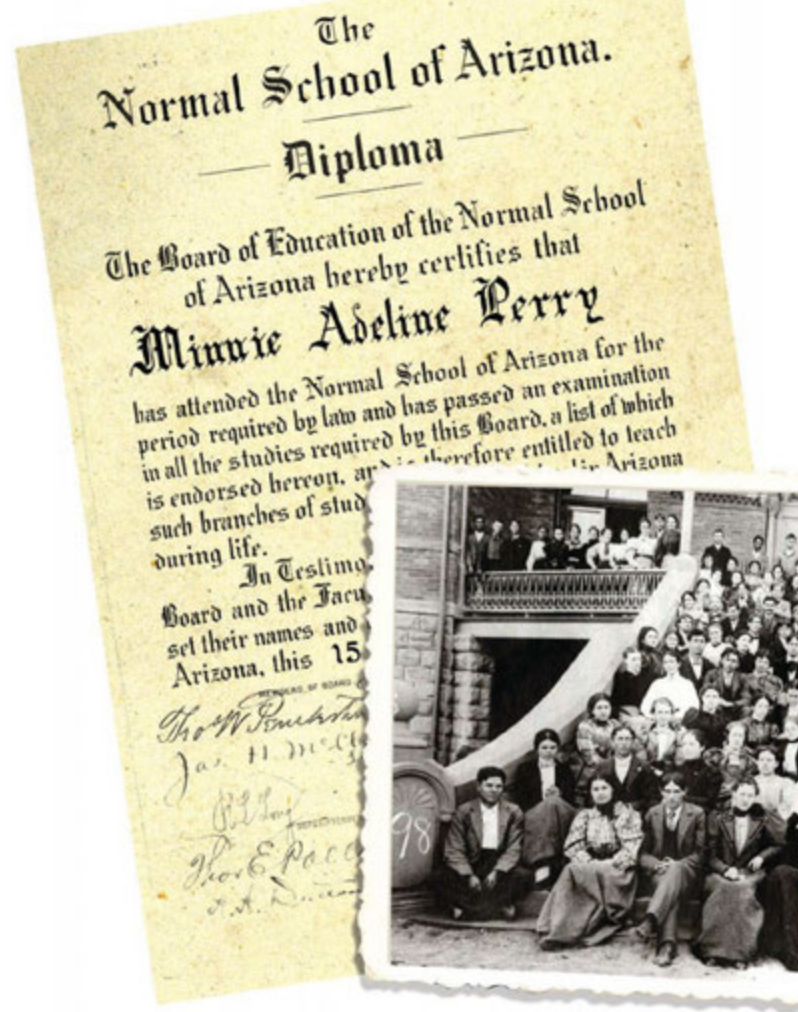 The
Normal School of Arizona.
Diploma
The Board of Education of the Normal School
of Arizona hereby certifies that
Minnie Adeline Perry
has attended the Normal School of Arizona for the
period required by law and has passed an examination
in all the studies required by this Board, a list of which
is endorsed hereon, and is therefore entitled to teach
such branches of stud in Arizona
during life.
In Testimo
Board and the Facu
set their names and
Arizona, this 15
MEMBERS OF BOARD
Thos W
Jas. H. McCl
Thos E
98